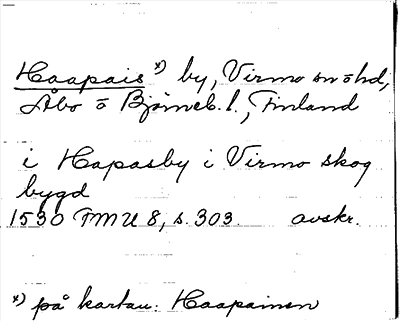 Haapais *) by, Virmo sn o hd,
Åbo o Björneb. l., Finland
i Hapasby i Virmo skog
bygd
1530 FMU 8, s. 303. avskr.
*) på kartan: Haapainen